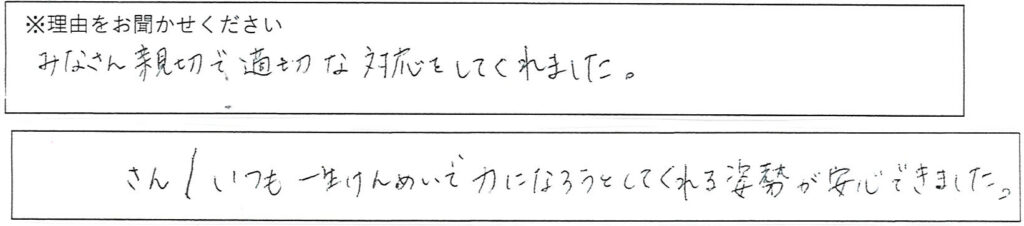 ※理由をお聞かせください
みなさん親切で適切な対応をしてくれました。
さん/いつも一生けんめいで力になろうとしてくれる姿勢が安心できました。